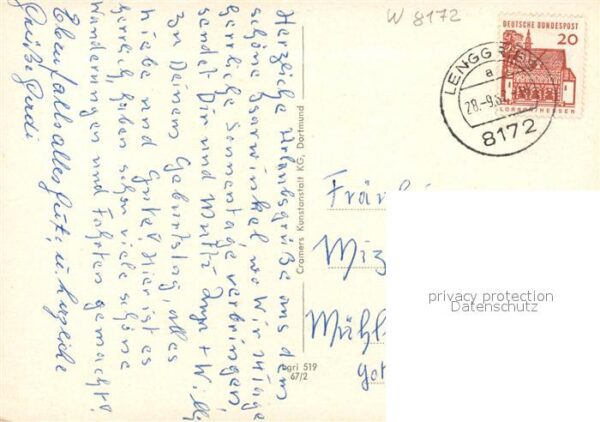 Herzliche Urlaubsgrüße aus dem
schönen Isarwinkel wo wir 14 Tage
herrliche Sonnentage verbringen,
sendet Dir und Mutti Inge + Willi
Zu Deinem Geburtstag, alles
Liebe und Gute! Hier ist es
herrlich, haben schon viele schöne
Wanderungen und Fahrten gemacht!
Ebenfalls alles Gute, u. herzliche
Grüße Gerdi
Cramers Kunstanstalt KG, Dortmund
agri 519
67/2
W 8172
DEUTSCHE BUNDESPOST
20
LORSCH/HESSEN
LENGG
a
28.-9.
8172
Fräul
Miz
Mühl
Got
privacy protection
Datenschutz